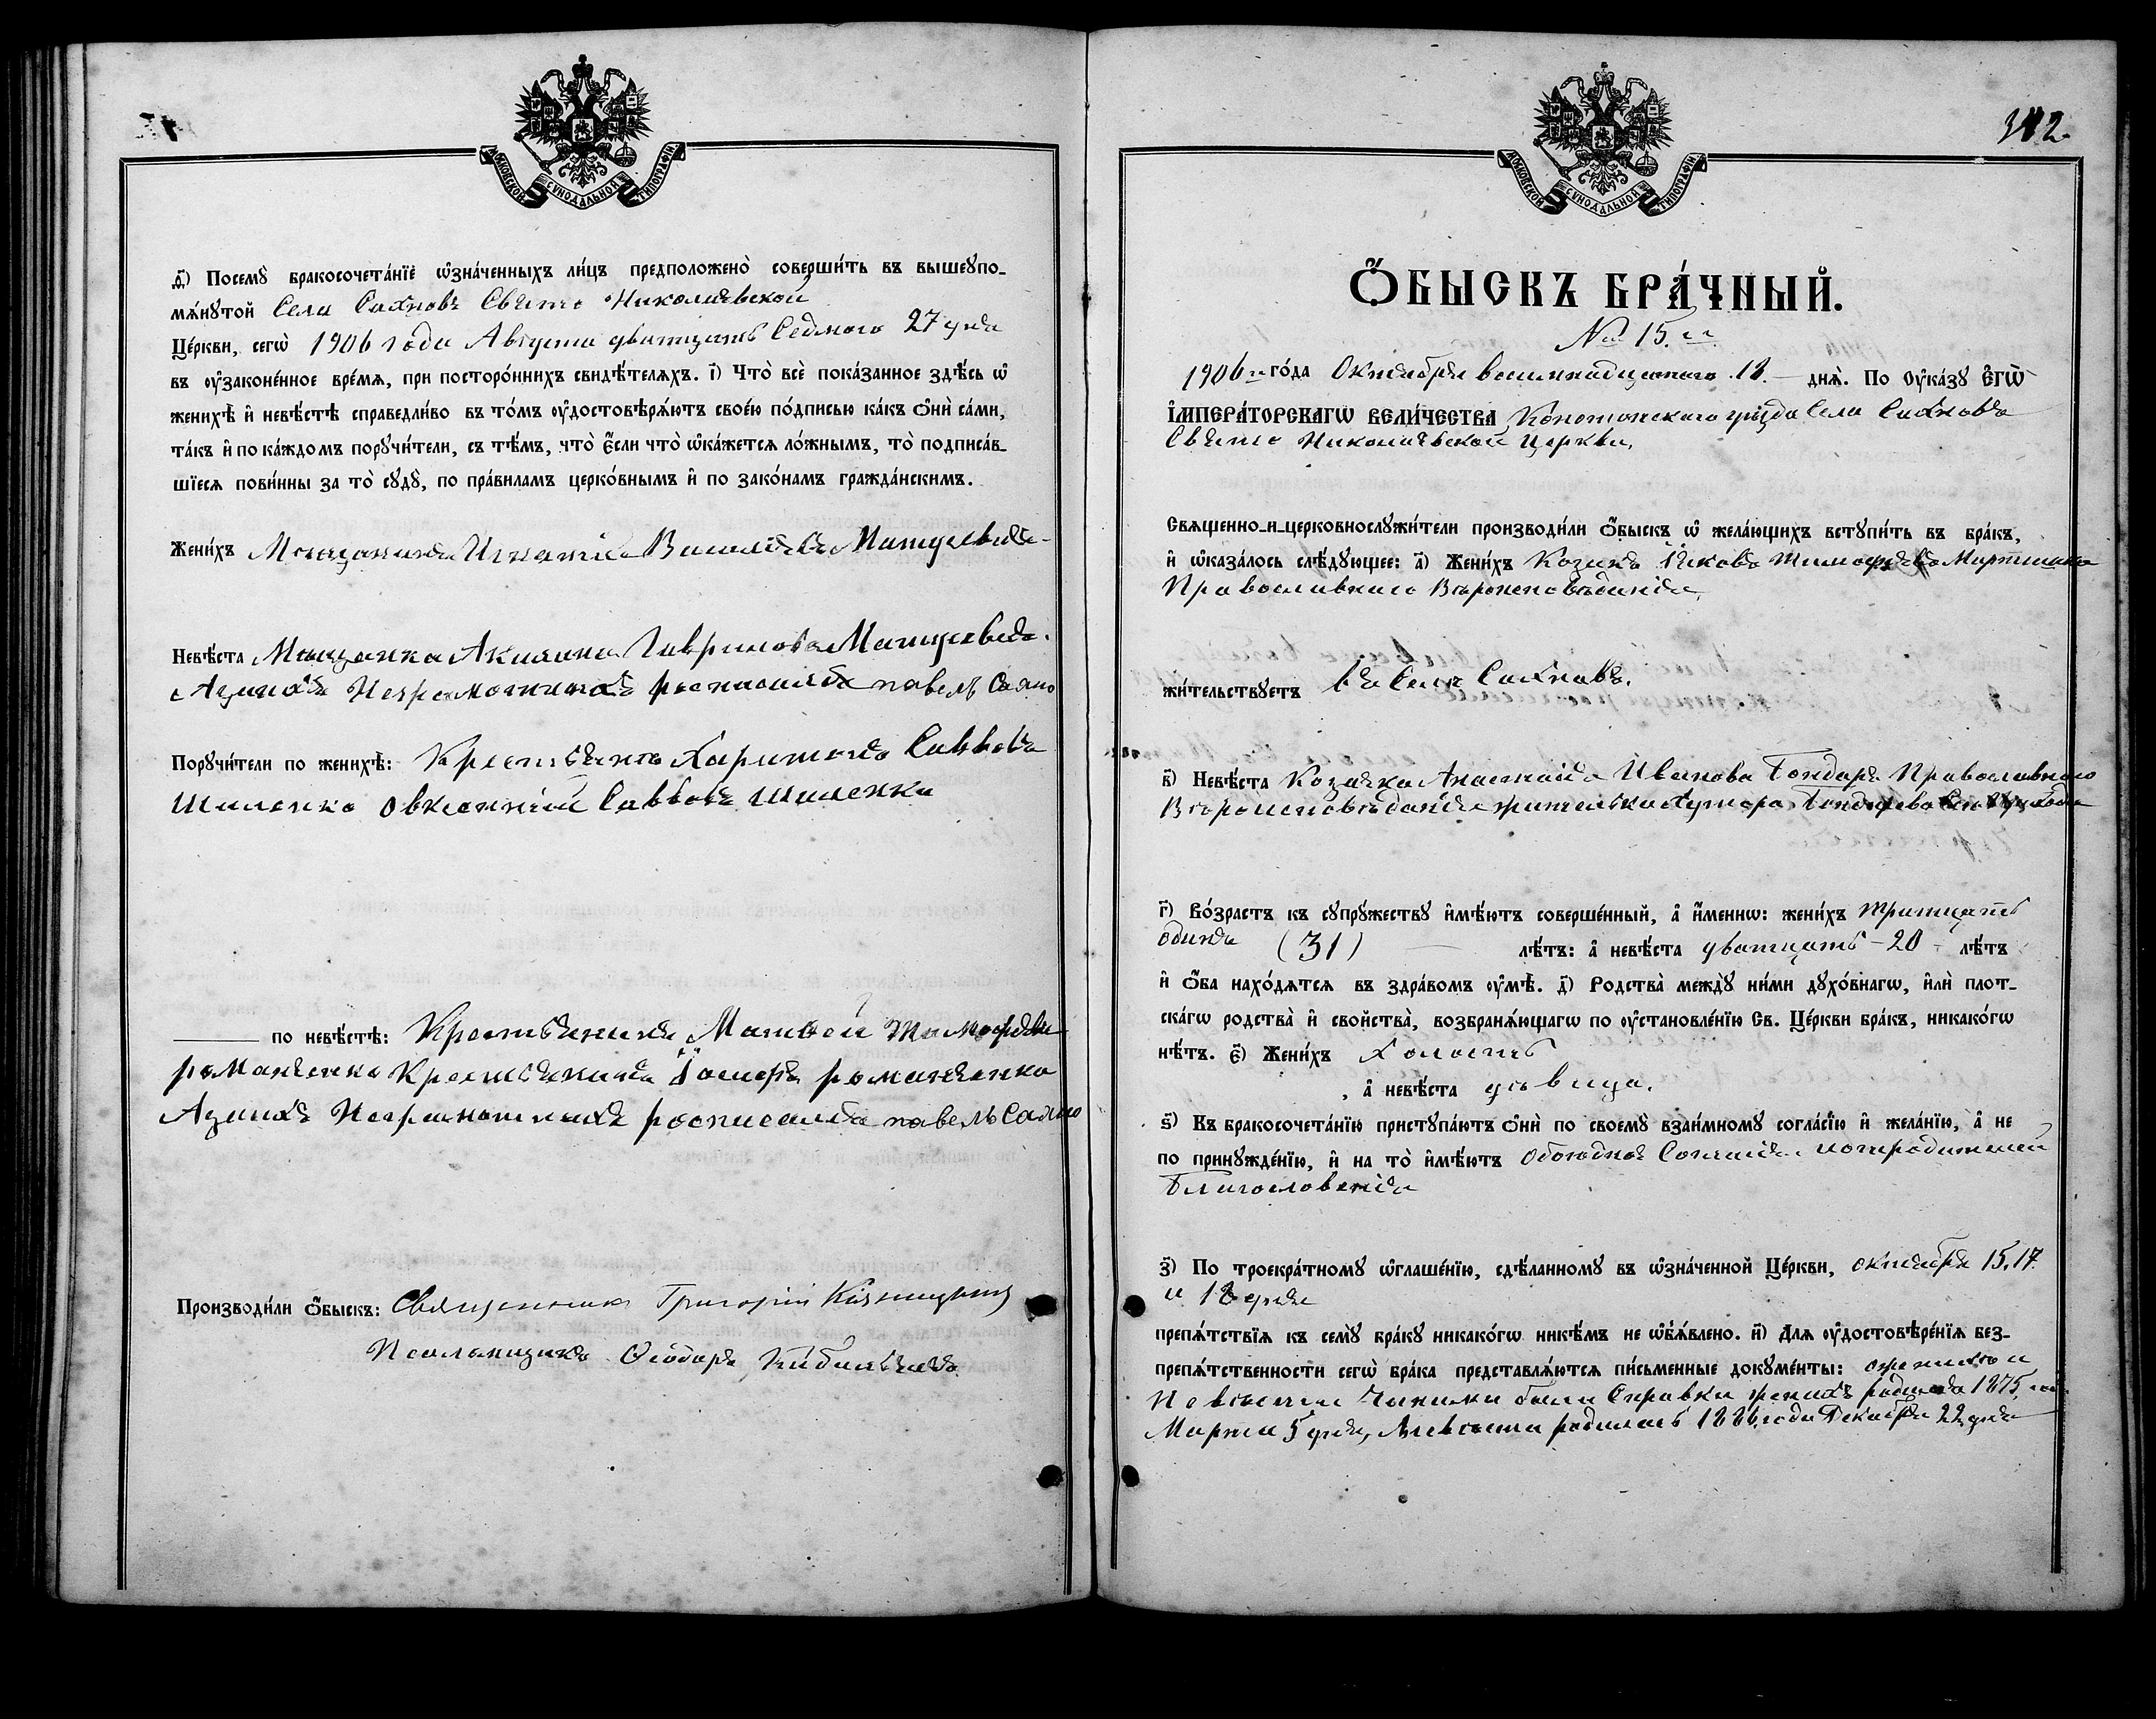 МОСКОВСКОЙ СѴНОДАЛЬНОЙ ТИПОГРАФІИ
ѳ҃) Посемꙋ̀ бракосочета́нїе ѡ҆зна́ченныхъ ли́цъ предположено̀ соверши́ть въ вышеꙋпо-
мѧ́нꙋтой Села Сахновъ Свято Николаевской
Це́ркви, сегѡ̀ 1906 года Августа дватцать Седмого 27 дня
въ ᲂу҆зако́ненное вре́мѧ, при посторо́ннихъ свидѣ́телѧхъ. і҃) Что̀ всѐ пока́занное здѣ́сь ѡ҆
женихѣ̀ и҆ невѣ́стѣ справедли́во въ то́мъ ᲂу҆достовѣрѧ́ютъ свое́ю по́дписью ка́къ ѻ҆нѝ са́ми,
та́къ и҆ по ка́ждомъ порꙋчи́тели, съ тѣ́мъ, что̀ є҆́сли что̀ ѡ҆ка́жетсѧ ло́жнымъ, то̀ подписа́в-
шїесѧ пови́нны за то̀ сꙋдꙋ̀, по пра́виламъ церко́внымъ и҆ по зако́намъ гражда́нскимъ.
Жени́хъ Мещанинъ Игнатій Василіевъ Матусевичъ
Невѣ́ста Мещанка Акилина Гаврилова Матусевичъ
Азанихъ Неграмотныхъ росписалса павелъ Сахно
Порꙋчи́тели по женихѣ̀: Крестьянъ Харитонъ Саввовъ
Шиленко Овксентій Саввовъ Шиленко
по невѣ́стѣ: Крестьянинъ Матвей Тимофѣевъ
романченко Крестьянинъ Іосифъ романченко
Азанихъ Неграмотныхъ росписалса павелъ Сахно
Производи́ли ѻ҆́быскъ: Священникъ Григорій
Псаломщикъ Ѳеодоръ
342
МОСКОВСКОЙ СѴНОДАЛЬНОЙ ТИПОГРАФІИ
Ѻ҆́БЫСКЪ БРА́ЧНЫЙ.
№ 15.
1906 го́да Октября восемнадцатого 18. днѧ̀. По Оу҆ка́зꙋ Є҆гѡ̀
И҆МПЕРА́ТОРСКАГѠ ВЕЛИ́ЧЕСТВА Конотопского уѣзда Села Сахновъ
Свято Николаевской Церкви,
Свѧщенно-и-церковнослꙋжи́тели производи́ли ѻ҆́быскъ ѡ҆ жела́ющихъ встꙋпи́ть въ бра́къ,
и҆ ѡ҆каза́лось слѣ́дꙋющее: а҃) Жени́хъ Козакъ Іяковъ Тимофѣевъ Мартиша
Православного Вероисповѣданія
жи́тельствꙋетъ въ Селѣ Сахновъ.
в҃) Невѣ́ста Козачка Анастасія Иванова Бондарь Православного
Вѣроисповѣданія жителька хутора
г҃) Во́зрастъ къ сꙋпрꙋ́жествꙋ и҆мѣ́ютъ соверше́нный, а҆ и҆́меннѡ: жени́хъ тритцать
одинъ (31) лѣ́тъ: а҆ невѣ́ста дватцать - 20 - лѣ́тъ
и҆ ѻ҆́ба нахо́дѧтсѧ въ здра́вомъ ᲂу҆мѣ̀. д҃) Родства̀ междꙋ̀ ни́ми дꙋхо́внагѡ, и҆лѝ плот-
ска́гѡ родства̀ и҆ сво́йства̀, возбранѧ́ющагѡ по ᲂу҆становле́нїю Св. Це́ркви бра́къ, никако́гѡ
нѣ́тъ. є҃) Жени́хъ Холостъ
, а҆ невѣ́ста дѣвица.
ѕ҃) Къ бракосочета́нїю пристꙋпа́ютъ ѻ҆нѝ по своемꙋ̀ взаи́мномꙋ согла́сїю и҆ жела́нїю, а҆ не
по принꙋжде́нїю, и҆ на то̀ и҆мѣ́ютъ Обоюдное Согласія ихъ родителей
Благословенія
з҃) По троекра́тномꙋ ѡ҆глаше́нїю, сдѣ́ланномꙋ въ ѡ҆зна́ченной Це́ркви, октября 15, 17
и 18 дня
препѧ́тствїѧ къ семꙋ̀ бра́кꙋ никако́гѡ никѣ́мъ не ѡ҆б̾ѧ́влено. и҃) Длѧ ᲂу҆достовѣре́нїѧ без-
препѧ́тственности сегѡ̀ бра́ка представлѧ́ютсѧ пи́сьменные докꙋме́нты: ожениховы
Невѣсты были Справки женихъ родился 1875 год
Марта 5 дня, Невѣста родилась 1886 года Декабря 22 дня